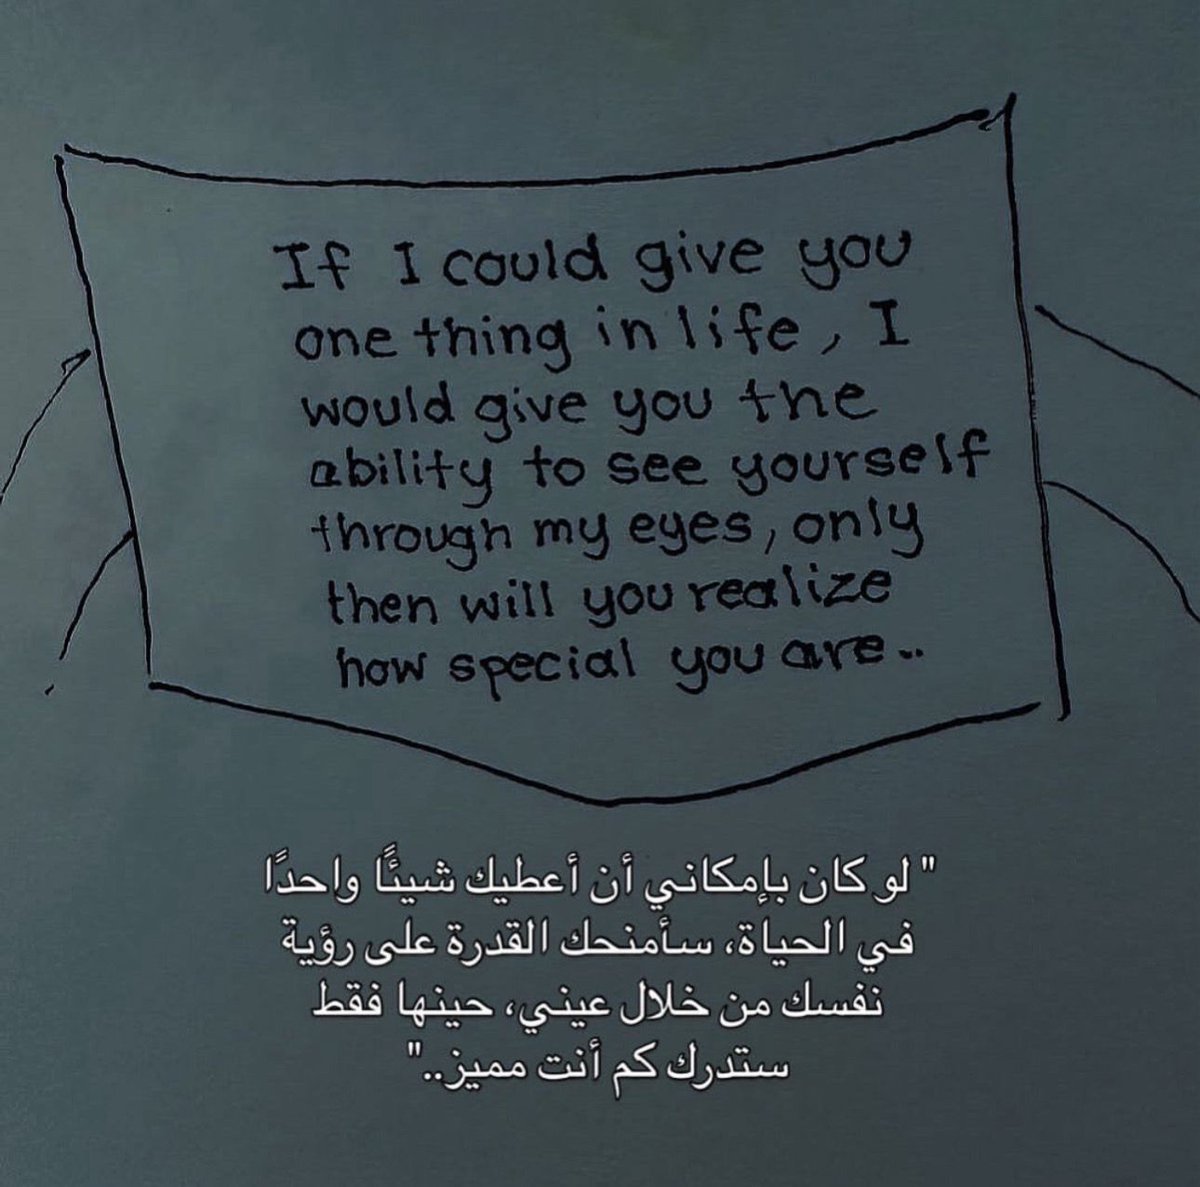 If I could give you
one thing in life, I
would give you the
ability to see yourself
through my eyes, only
then will you realize
how special you are..
" لو كان بإمكاني أن أعطيك شيئًا واحدًا
في الحياة، سأمنحك القدرة على رؤية
نفسك من خلال عيني، حينها فقط
ستدرك كم أنت مميز.."